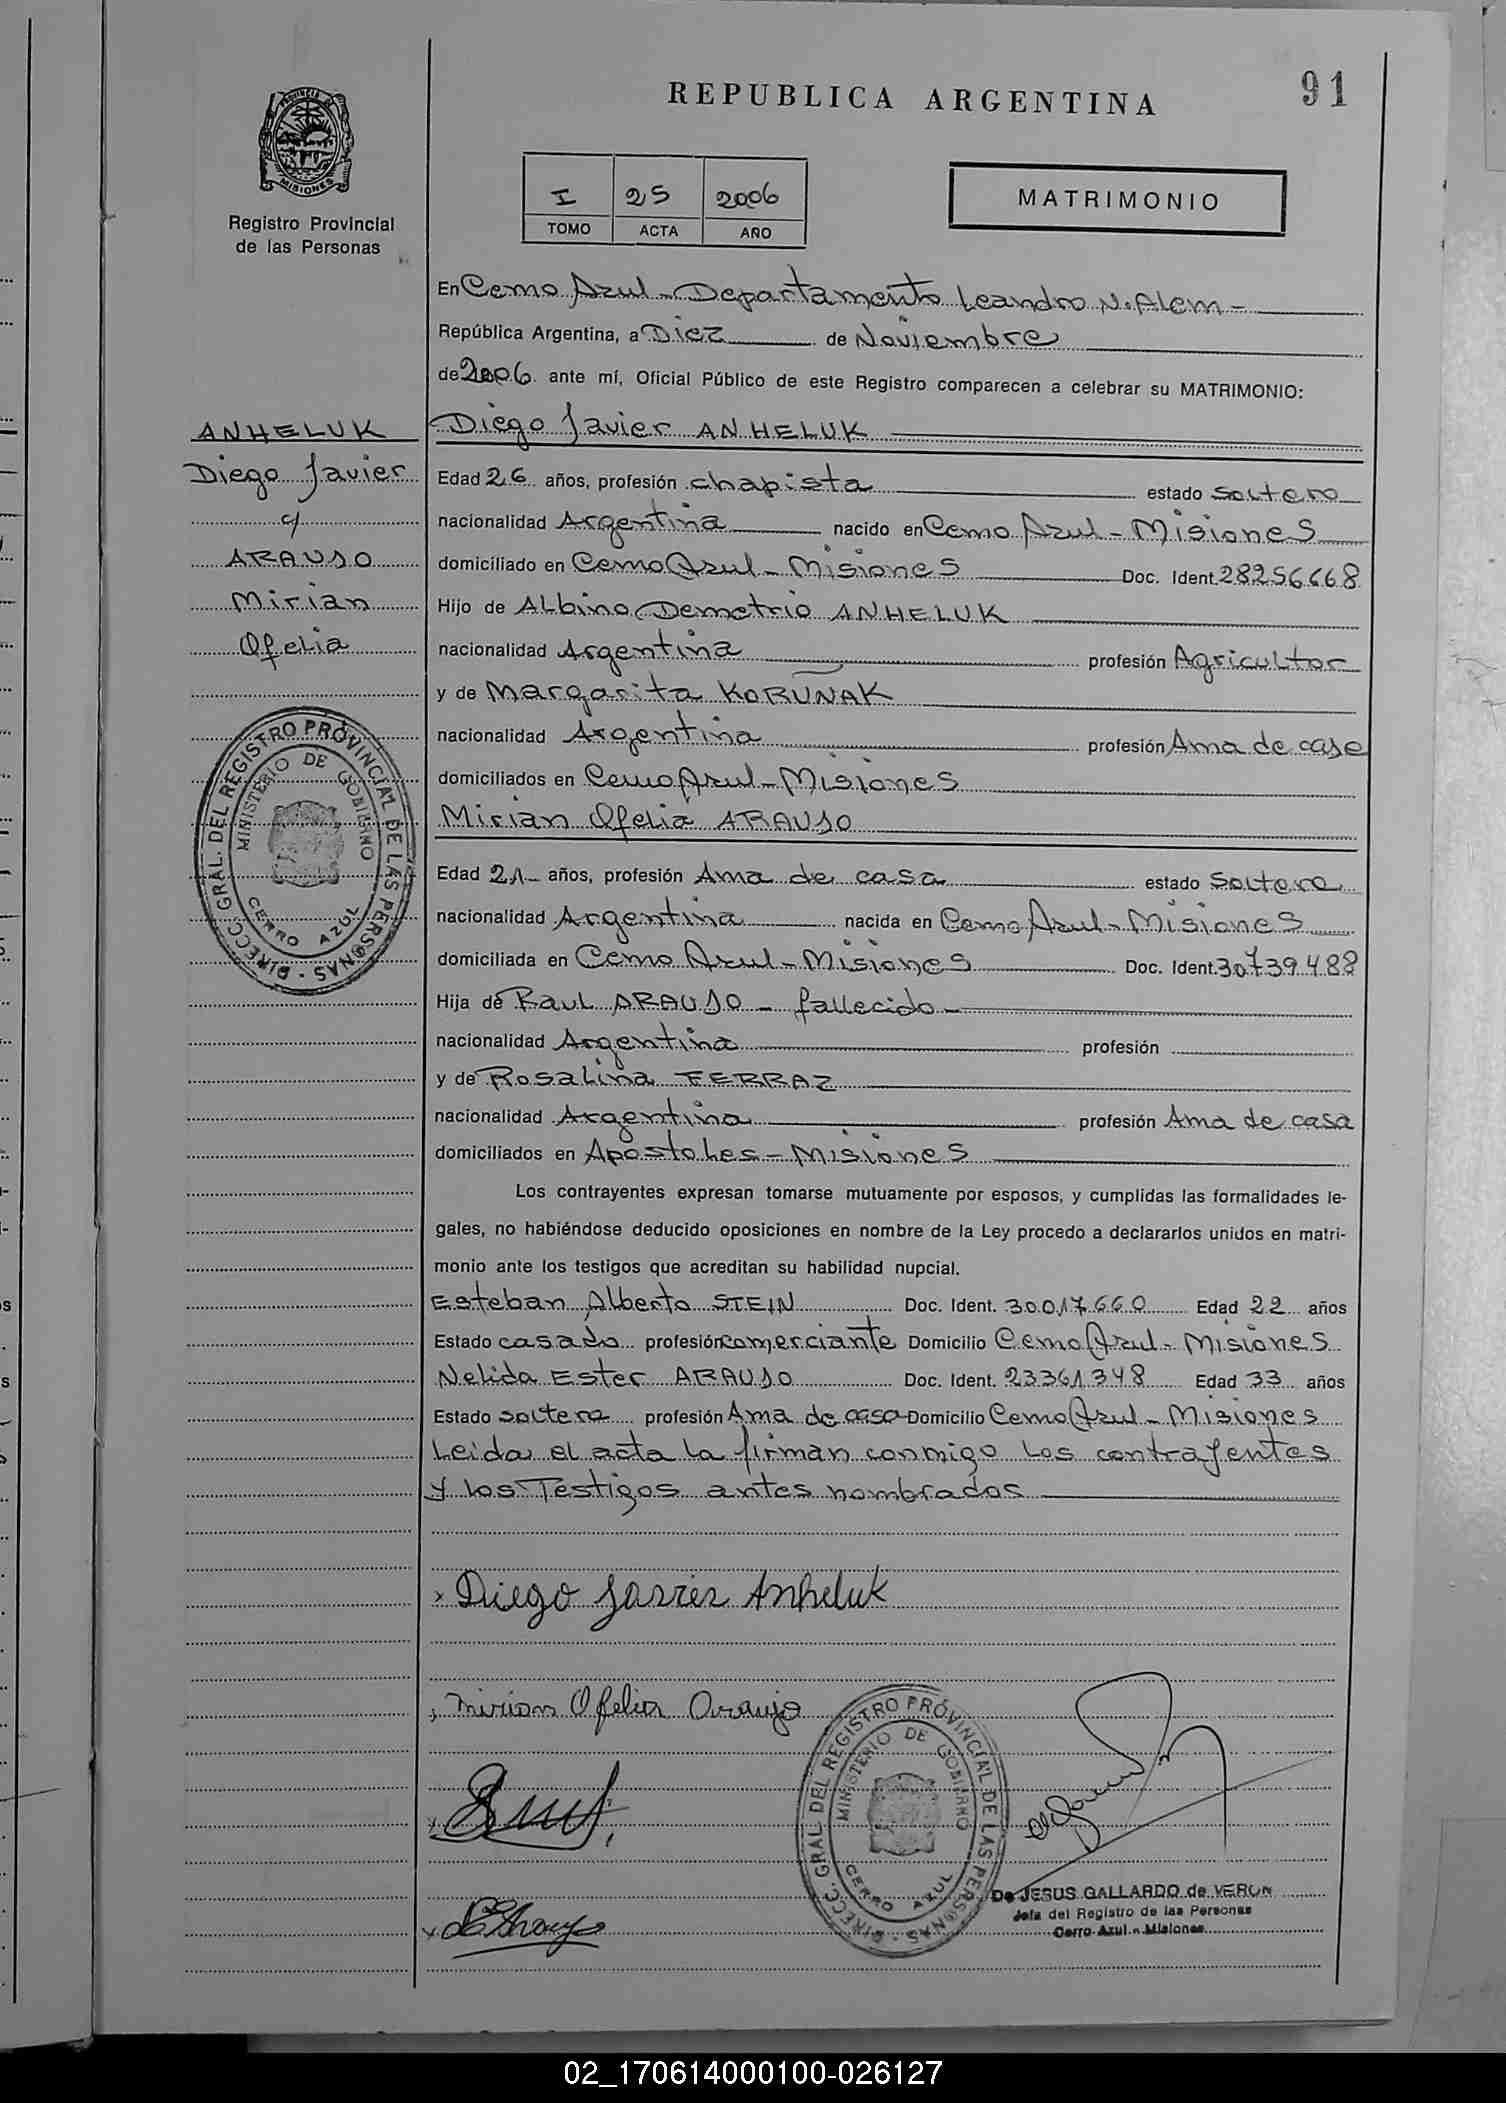 91
REPUBLICA ARGENTINA
PROVINCIA DE
MISIONES
Registro Provincial
de las Personas
I 25 2006
TOMO ACTA AÑO
MATRIMONIO
En Cerro Azul - Departamento Leandro N. Alem -
República Argentina, a Diez de Noviembre
de 2006 ante mí, Oficial Público de este Registro comparecen a celebrar su MATRIMONIO:
ANHELUK
Diego Javier
c/
ARAUJO
Mirian
Ofelia
Diego Javier ANHELUK
Edad 26 años, profesión chapista estado soltero
nacionalidad Argentina nacido en Cerro Azul - Misiones
domiciliado en Cerro Azul - Misiones Doc. Ident. 28256668
Hijo de Albino Demetrio ANHELUK
nacionalidad Argentina profesión Agricultor
y de Margarita KORUÑAK
nacionalidad Argentina profesión Ama de casa
domiciliados en Cerro Azul - Misiones
Mirian Ofelia ARAUJO
Edad 21 - años, profesión Ama de casa estado soltera
nacionalidad Argentina nacida en Cerro Azul - Misiones
domiciliada en Cerro Azul - Misiones Doc. Ident. 30739488
Hija de Raul ARAUJO - fallecido -
nacionalidad Argentina profesión
y de Rosalina FERRAZ
nacionalidad Argentina profesión Ama de casa
domiciliados en Apostoles - Misiones
Los contrayentes expresan tomarse mutuamente por esposos, y cumplidas las formalidades le-
gales, no habiéndose deducido oposiciones en nombre de la Ley procedo a declararlos unidos en matri-
monio ante los testigos que acreditan su habilidad nupcial.
Esteban Alberto STEIN Doc. Ident. 30017660 Edad 22 años
Estado casado profesión comerciante Domicilio Cerro Azul - Misiones
Nelida Ester ARAUJO Doc. Ident. 23361348 Edad 33 años
Estado soltera profesión Ama de casa Domicilio Cerro Azul - Misiones
Leida el acta la firman conmigo los contrayentes
y los Testigos antes nombrados
DIRECC. GRAL. DEL REGISTRO PROVINCIAL DE LAS PERSONAS
MINISTERIO DE GOBIERNO
CERRO AZUL
x Diego Javier Anheluk
Mirian Ofelia Araujo
DIRECC. GRAL. DEL REGISTRO PROVINCIAL DE LAS PERSONAS
MINISTERIO DE GOBIERNO
CERRO AZUL
De JESUS GALLARDO de VERON
Jefa del Registro de las Personas
Cerro Azul - Misiones
02_170614000100-026127